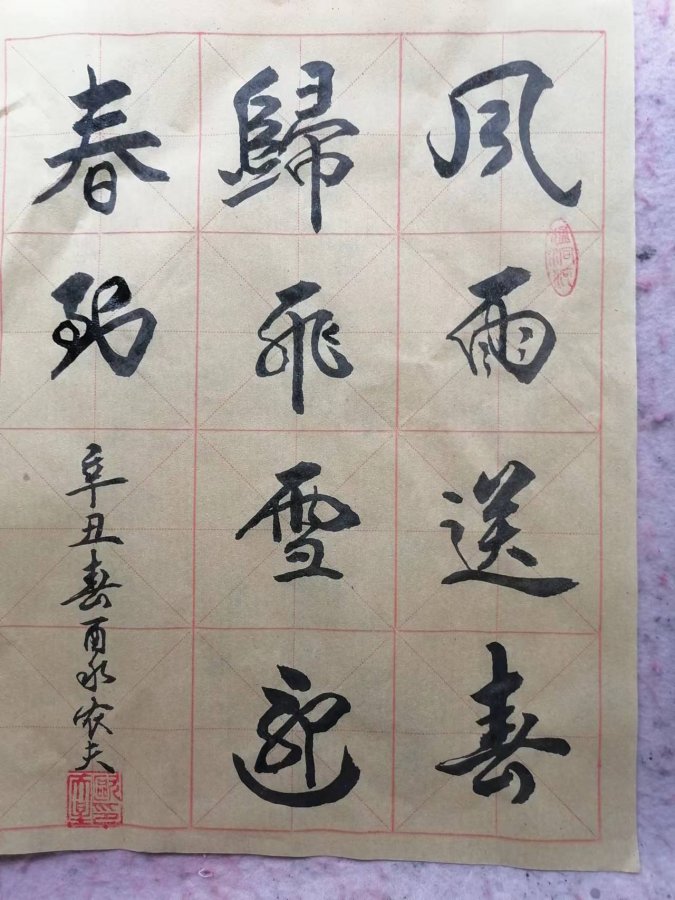 風雨送春
歸飛雪迎
春到
辛丑春酉水农夫